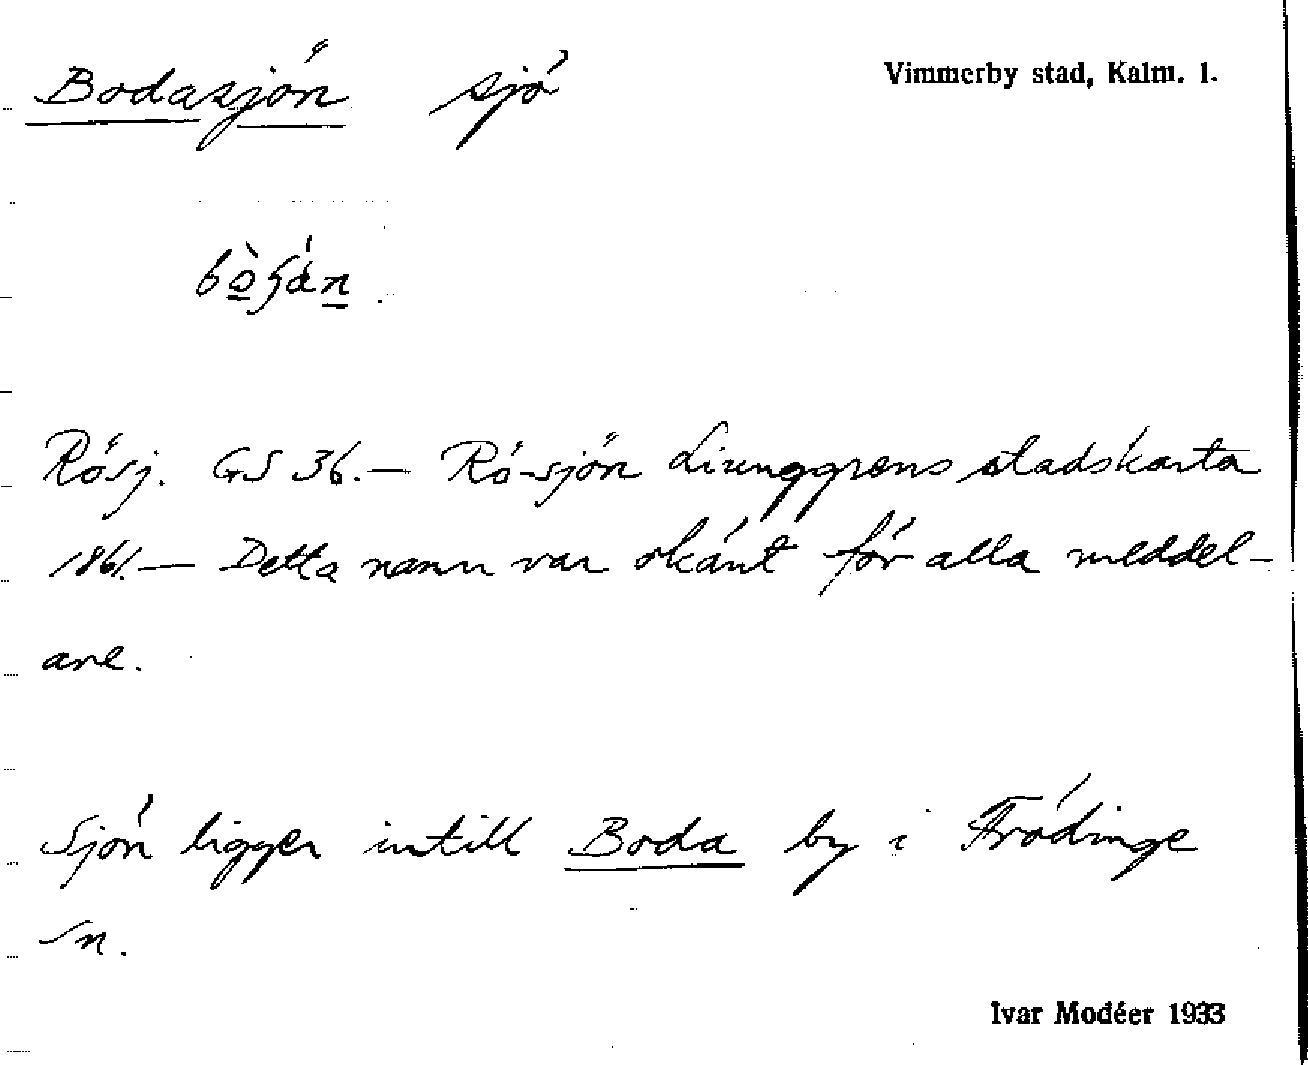 Bodasjön sjö Vimmerby stad, Kalm. l.
Rösj. GS 36. — Rö-sjön Liunggrens stadskarta
1861. — Detta namn var okänt för alla meddel-
are.
Sjön ligger intill Boda by i Frödinge
sn.
Ivar Modéer 1933